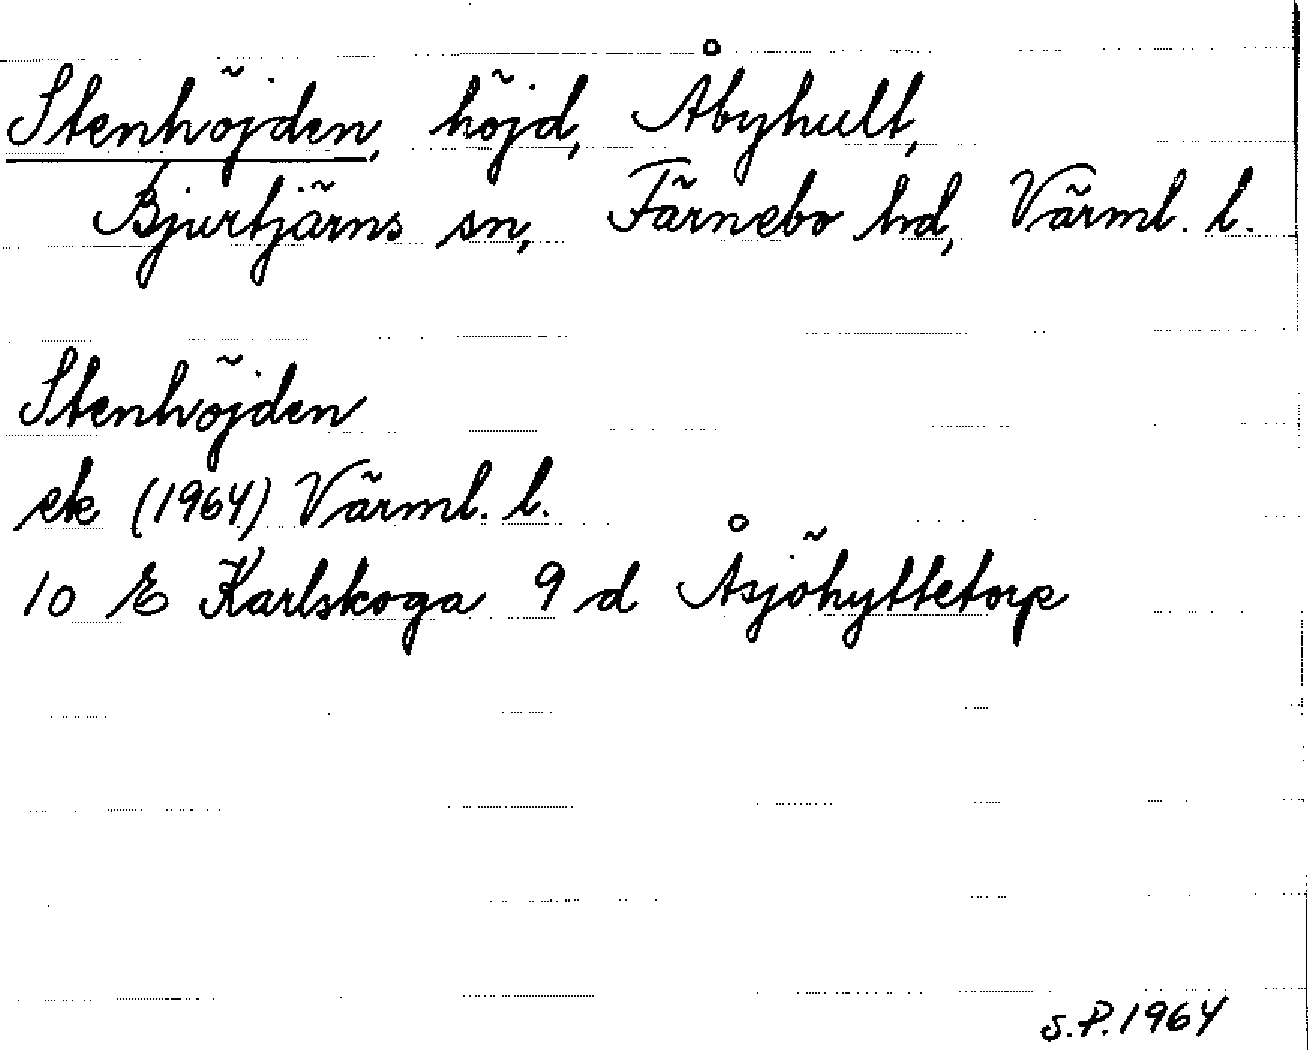 Stenhöjden, höjd, Åbyhult,
Bjurtjärns sn, Färnebo hd, Värml. l.
Stenhöjden
ek (1964) Värml. l.
10 E Karlskoga 9 d Åsjöhyttetorp
S.P. 1964